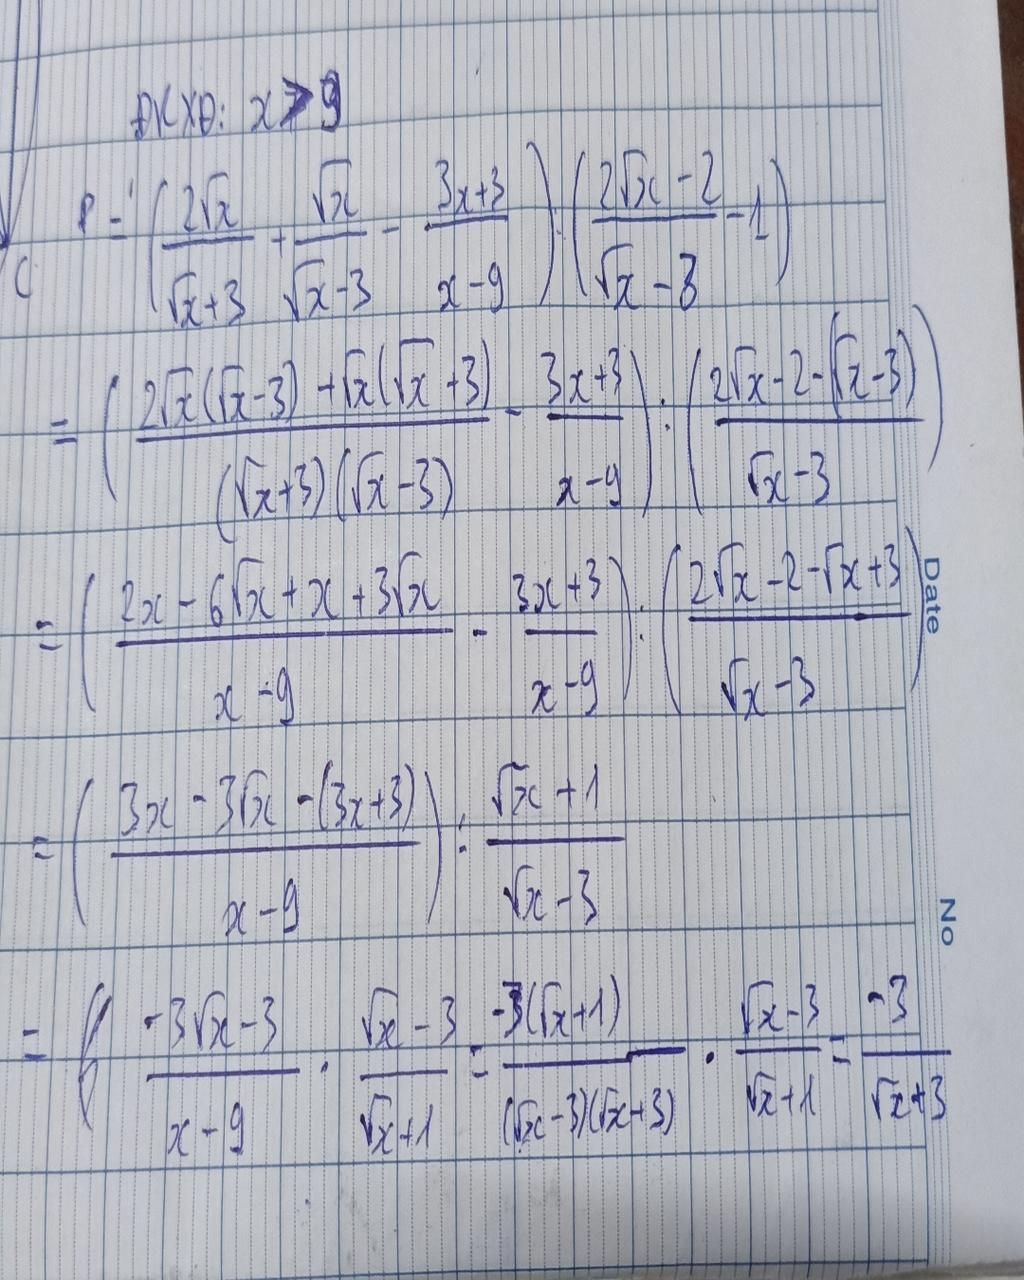 ĐKXĐ: x > 9
P = (2√x/(√x+3) + √x/(√x-3) - (3x+3)/(x-9)) : ((2√x-2)/(√x-3) - 1)
C
= ((2√x(√x-3) + √x(√x+3))/((√x+3)(√x-3)) - (3x+3)/(x-9)) : ((2√x-2-(√x-3))/(√x-3))
= ((2x-6√x+x+3√x)/(x-9) - (3x+3)/(x-9)) : ((2√x-2-√x+3)/(√x-3))
Date
= ((3x-3√x-(3x+3))/(x-9)) : (√x+1)/(√x-3)
No
= (-3√x-3)/(x-9) . (√x-3)/(√x+1) = -3(√x+1)/((√x-3)(√x+3)) . (√x-3)/(√x+1) = -3/(√x+3)